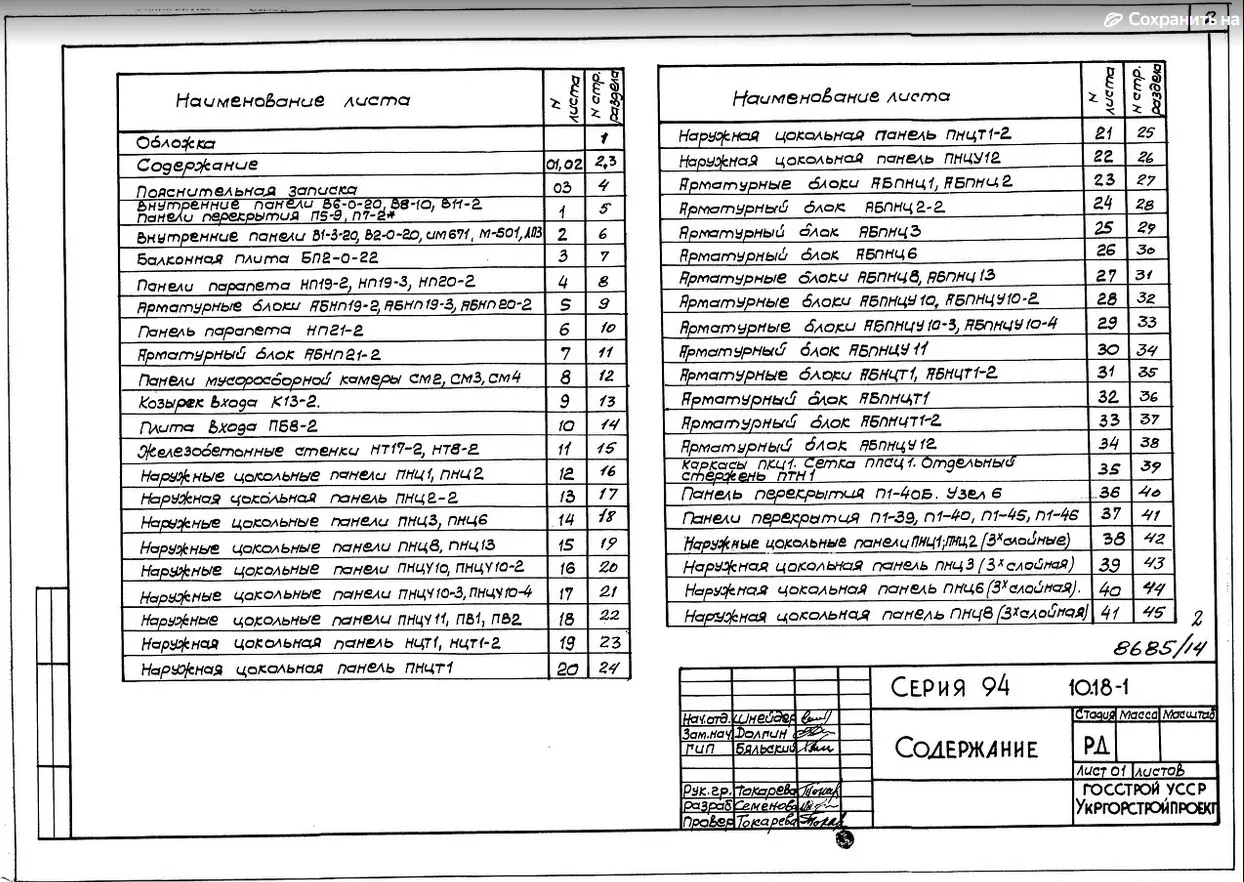 Сохранить на
2
Наименование листа | N листа | N стр. раздела
Обложка | | 1
Содержание | 01,02 | 2,3
Пояснительная записка | 03 | 4
Внутренние панели В6-0-20, В8-10, В11-2
Панели перекрытия П5-9, П7-2* | 1 | 5
Внутренние панели В1-3-20, В2-0-20, ИМ671, М-501, | 2 | 6
Балконная плита БП2-0-22 | 3 | 7
Панели парапета НП19-2, НП19-3, НП20-2 | 4 | 8
Арматурные блоки АБНП19-2, АБНП19-3, АБНП20-2 | 5 | 9
Панель парапета НП21-2 | 6 | 10
Арматурный блок АБНП21-2 | 7 | 11
Панели мусоросборной камеры СМ2, СМ3, СМ4 | 8 | 12
Козырек входа К13-2. | 9 | 13
Плита входа ПБ8-2 | 10 | 14
Железобетонные стенки НТ17-2, НТ8-2 | 11 | 15
Наружные цокольные панели ПНЦ1, ПНЦ2 | 12 | 16
Наружная цокольная панель ПНЦ2-2 | 13 | 17
Наружные цокольные панели ПНЦ3, ПНЦ6 | 14 | 18
Наружные цокольные панели ПНЦ8, ПНЦ13 | 15 | 19
Наружные цокольные панели ПНЦУ10, ПНЦУ10-2 | 16 | 20
Наружные цокольные панели ПНЦУ10-3, ПНЦУ10-4 | 17 | 21
Наружные цокольные панели ПНЦУ11, ПВ1, ПВ2 | 18 | 22
Наружная цокольная панель НЦТ1, НЦТ1-2 | 19 | 23
Наружная цокольная панель ПНЦТ1 | 20 | 24
Наименование листа | N листа | N стр. раздела
Наружная цокольная панель ПНЦТ1-2 | 21 | 25
Наружная цокольная панель ПНЦУ12 | 22 | 26
Арматурные блоки АБПНЦ1, АБПНЦ2 | 23 | 27
Арматурный блок АБПНЦ2-2 | 24 | 28
Арматурный блок АБПНЦ3 | 25 | 29
Арматурный блок АБПНЦ6 | 26 | 30
Арматурные блоки АБПНЦ8, АБПНЦ13 | 27 | 31
Арматурные блоки АБПНЦУ10, АБПНЦУ10-2 | 28 | 32
Арматурные блоки АБПНЦУ10-3, АБПНЦУ10-4 | 29 | 33
Арматурный блок АБПНЦУ11 | 30 | 34
Арматурные блоки АБНЦТ1, АБНЦТ1-2 | 31 | 35
Арматурный блок АБПНЦТ1 | 32 | 36
Арматурный блок АБПНЦТ1-2 | 33 | 37
Арматурный блок АБПНЦУ12 | 34 | 38
Каркасы ПКЦ1. Сетка ППСЦ1. Отдельный
стержень ПТН1 | 35 | 39
Панель перекрытия П1-40Б. Узел 6 | 36 | 40
Панели перекрытия П1-39, П1-40, П1-45, П1-46 | 37 | 41
Наружные цокольные панели ПНЦ1; ПНЦ2 (3х слойные) | 38 | 42
Наружная цокольная панель ПНЦ3 (3х слойная) | 39 | 43
Наружная цокольная панель ПНЦ6 (3х слойная). | 40 | 44
Наружная цокольная панель ПНЦ8 (3х слойная) | 41 | 45
2
8685/14
Серия 94 10.18-1
Нач.отд. Шнейдер
Зам.нач. Долгин
ГИП Бяльский
Рук.гр. Токарева
Разраб Семенова
Провер Токарева
Содержание
Стадия Масса Масштаб
РД
Лист 01 Листов
ГОССТРОЙ УССР
УКРГОРСТРОЙПРОЕКТ